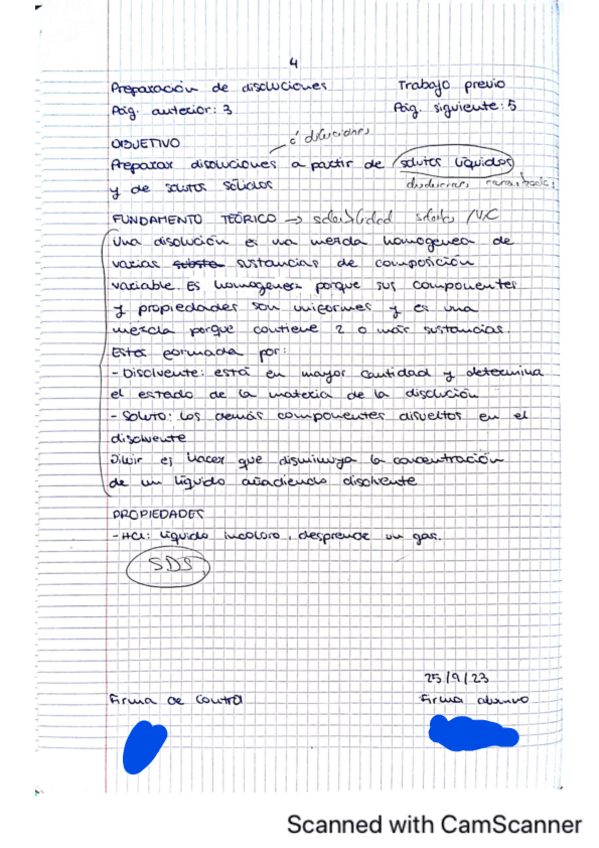 4
Preparación de disoluciones Trabajo previo
Pág. anterior: 3 Pág. siguiente: 5
OBJETIVO
o diluciones
Preparar disoluciones a partir de solutos líquidos
y de solutos sólidos
FUNDAMENTO TEÓRICO → solubilidad
Una disolución es una mezcla homogenea de
varias substa sustancias de composición
variable. Es homogenea porque sus componentes
y propiedades son uniformes y es una
mezcla porque contiene 2 o más sustancias.
Está formada por:
- Disolvente: está en mayor cantidad y determina
el estado de la materia de la disolución
- Soluto: los demás componentes disueltos en el
disolvente
Diluir es hacer que disminuya la concentración
de un líquido añadiendo disolvente
PROPIEDADES
- HCl: líquido incoloro, desprende un gas.
SDS
25/9/23
Firma de control Firma alumno
Scanned with CamScanner